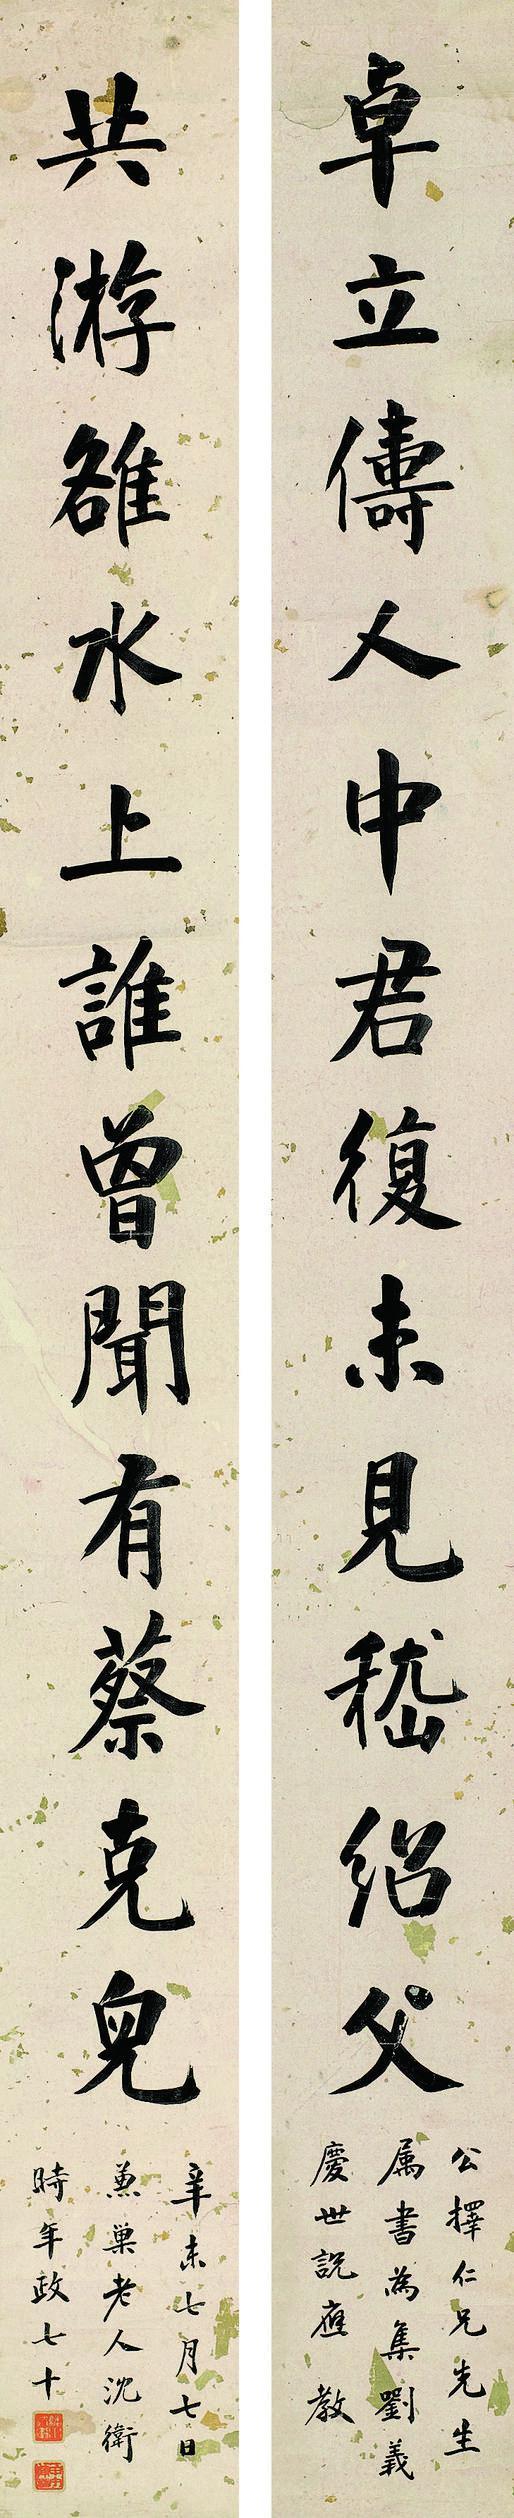 卓立儔人中君復未見嵇紹父
公擇仁兄先生
属書為集劉義
慶世説應教
共游雒水上誰曾聞有蔡克兒
辛未七月七日
兼巢老人沈衛
時年政七十